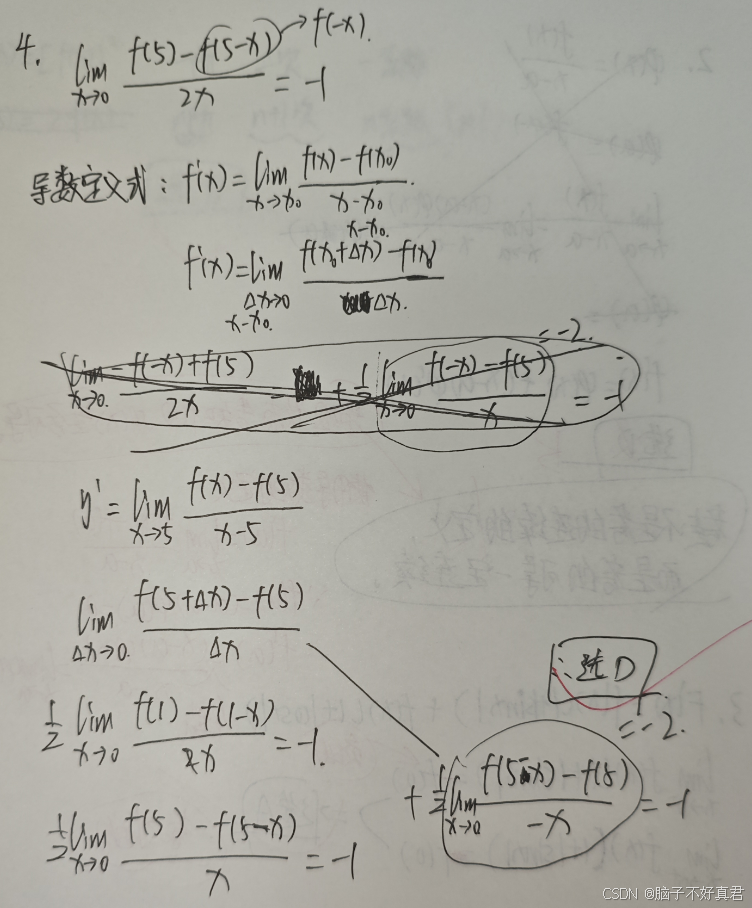 4. lim x→0 (f(5)-f(5-x))/(2x) = -1 → f(-x).
导数定义式: f'(x) = lim x→x₀ (f(x)-f(x₀))/(x-x₀).
x-x₀.
f'(x) = lim Δx→0 (f(x₀+Δx)-f(x₀))/(Δx).
x-x₀.
lim x→0. (-f(-x)+f(5))/(2x) = + 1/2 lim x→0 (f(-x)-f(5))/(-x) = -1
=-2.
y' = lim x→5 (f(x)-f(5))/(x-5)
lim Δx→0. (f(5+Δx)-f(5))/(Δx)
∴选D
1/2 lim x→0 (f(1)-f(1-x))/(x) = -1.
=-2.
+ 1/2 lim x→0 (f(5-x)-f(5))/(-x) = -1
1/2 lim x→0 (f(5)-f(5-x))/(x) = -1
CSDN @脑子不好真君